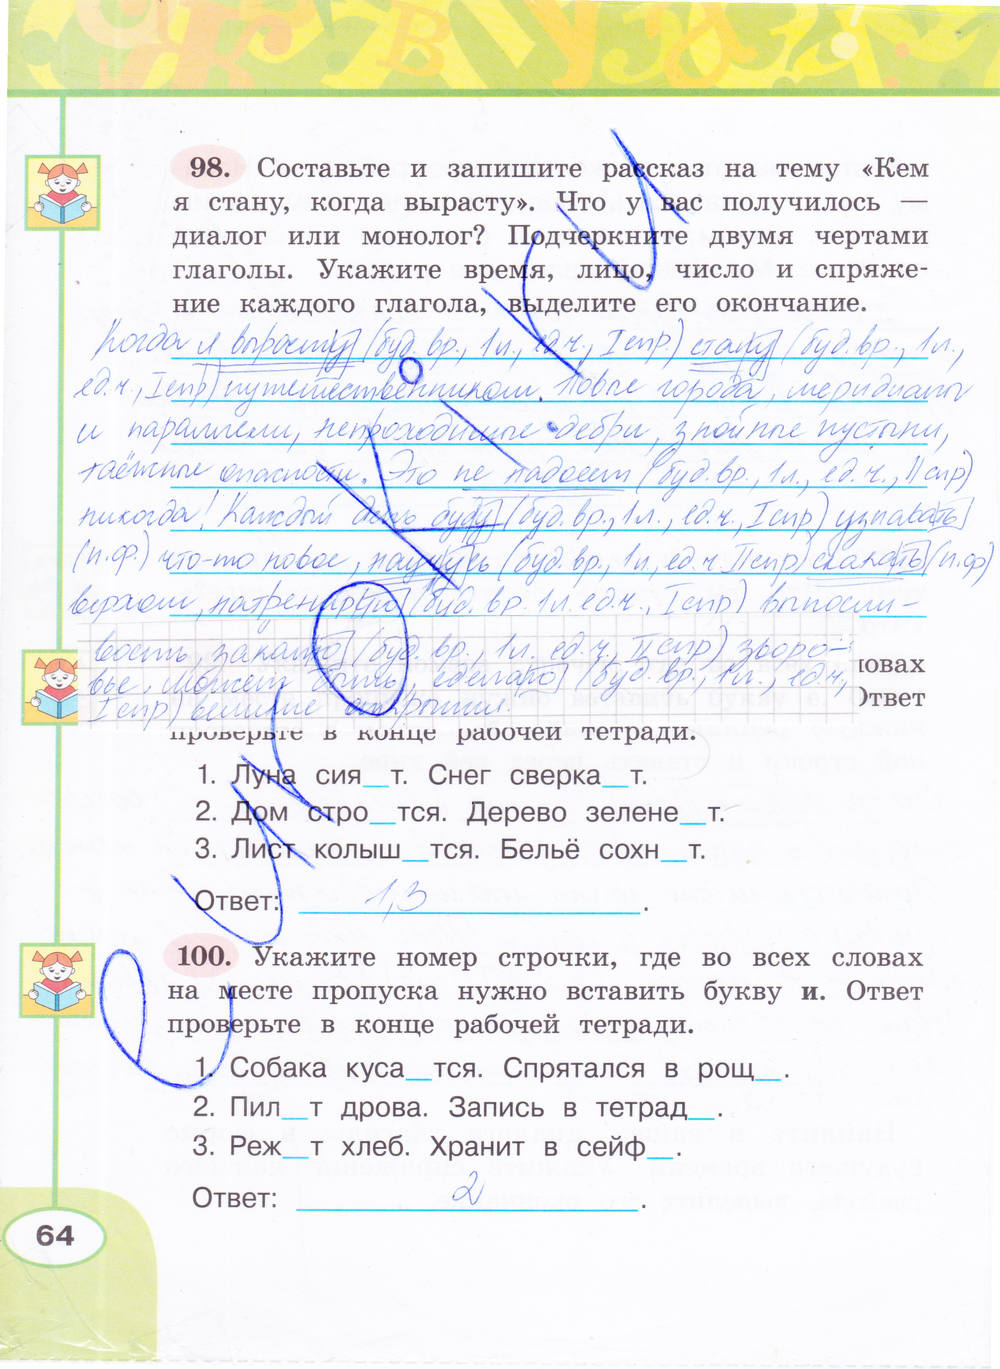 98. Составьте и запишите рассказ на тему «Кем
я стану, когда вырасту». Что у вас получилось —
диалог или монолог? Подчеркните двумя чертами
глаголы. Укажите время, лицо, число и спряже-
ние каждого глагола, выделите его окончание.
Когда я вырасту (буд. вр., 1л., ед.ч., Iспр) стану (буд. вр., 1л.,
ед.ч., Iспр) путешественником. Новые города, меридианы
и параллели, непроходимые дебри, знойные пустыни,
таёжные опасности. Это не надоест (буд. вр., 1л., ед.ч., IIспр)
никогда! Каждый день буду (буд. вр., 1л., ед.ч., Iспр) узнавать
(н.ф.) что-то новое, научусь (буд. вр., 1л, ед.ч. IIспр) скакать (н.ф)
верхом, натренирую (буд. вр. 1л. ед.ч., Iспр) выносли-
вость, закалю (буд. вр., 1л. ед.ч., IIспр) здоро-
вье. Может быть, сделаю (буд. вр., 1л., ед.ч.,
Iспр) великие открытия.
ловах
Ответ
проверьте в конце рабочей тетради.
1. Луна сия__т. Снег сверка__т.
2. Дом стро__тся. Дерево зелене__т.
3. Лист колыш__тся. Бельё сохн__т.
Ответ: 1,3.
100. Укажите номер строчки, где во всех словах
на месте пропуска нужно вставить букву и. Ответ
проверьте в конце рабочей тетради.
1. Собака куса__тся. Спрятался в рощ__.
2. Пил__т дрова. Запись в тетрад__.
3. Реж__т хлеб. Хранит в сейф__.
Ответ: 2.
64
еуроки.ки